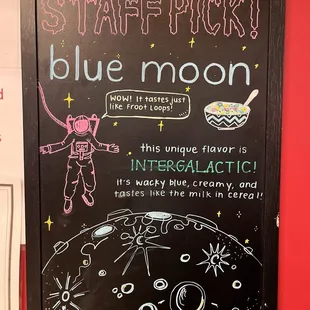 STAFF PICK!
blue moon
WOW! IT tastes just
like Froot Loops!
this unique flavor is
INTERGALACTIC!
It's wacky blue, creamy, and
tastes like the milk in cereal!